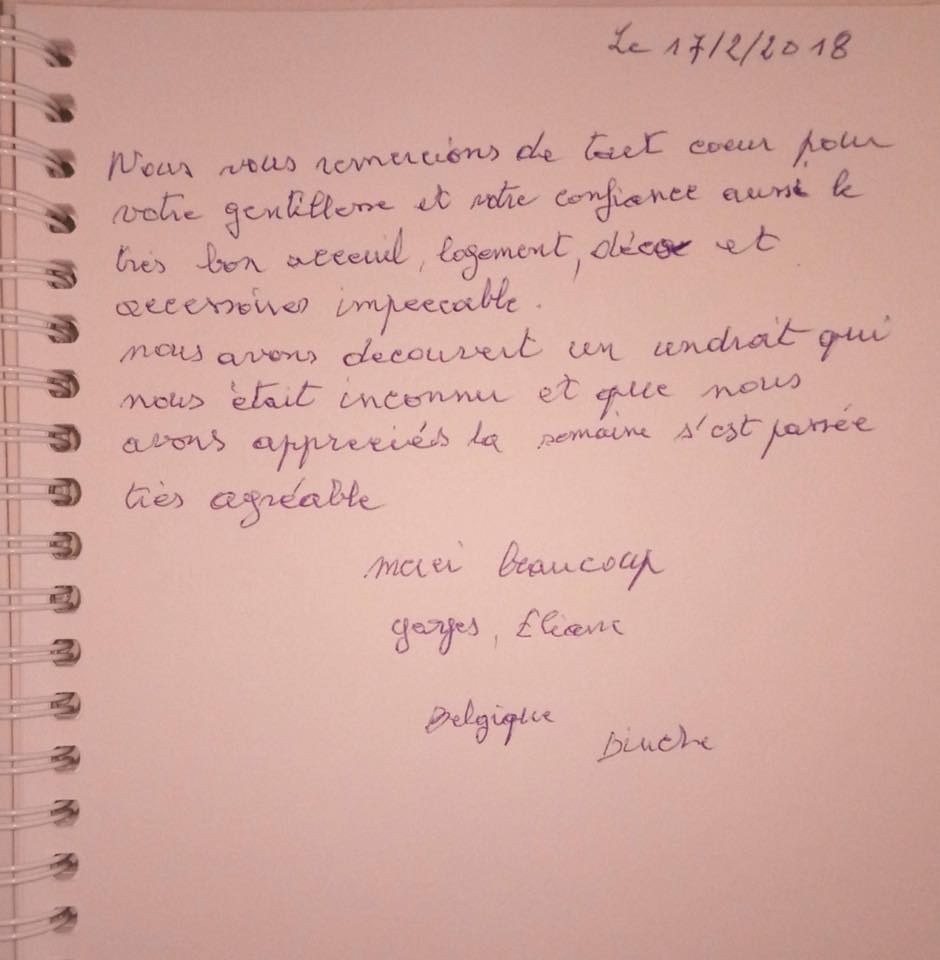 Le 17/2/2018
Nous vous remercions de tout coeur pour
votre gentillesse et votre confiance aussi le
très bon acceuil, logement, déco et
accessoires impeccable.
nous avons decouvert un endroit qui
nous était inconnu et que nous
avons appreciés la semaine s'est passée
très agréable
merci beaucoup
Georges, Eliane
Belgique
Binche